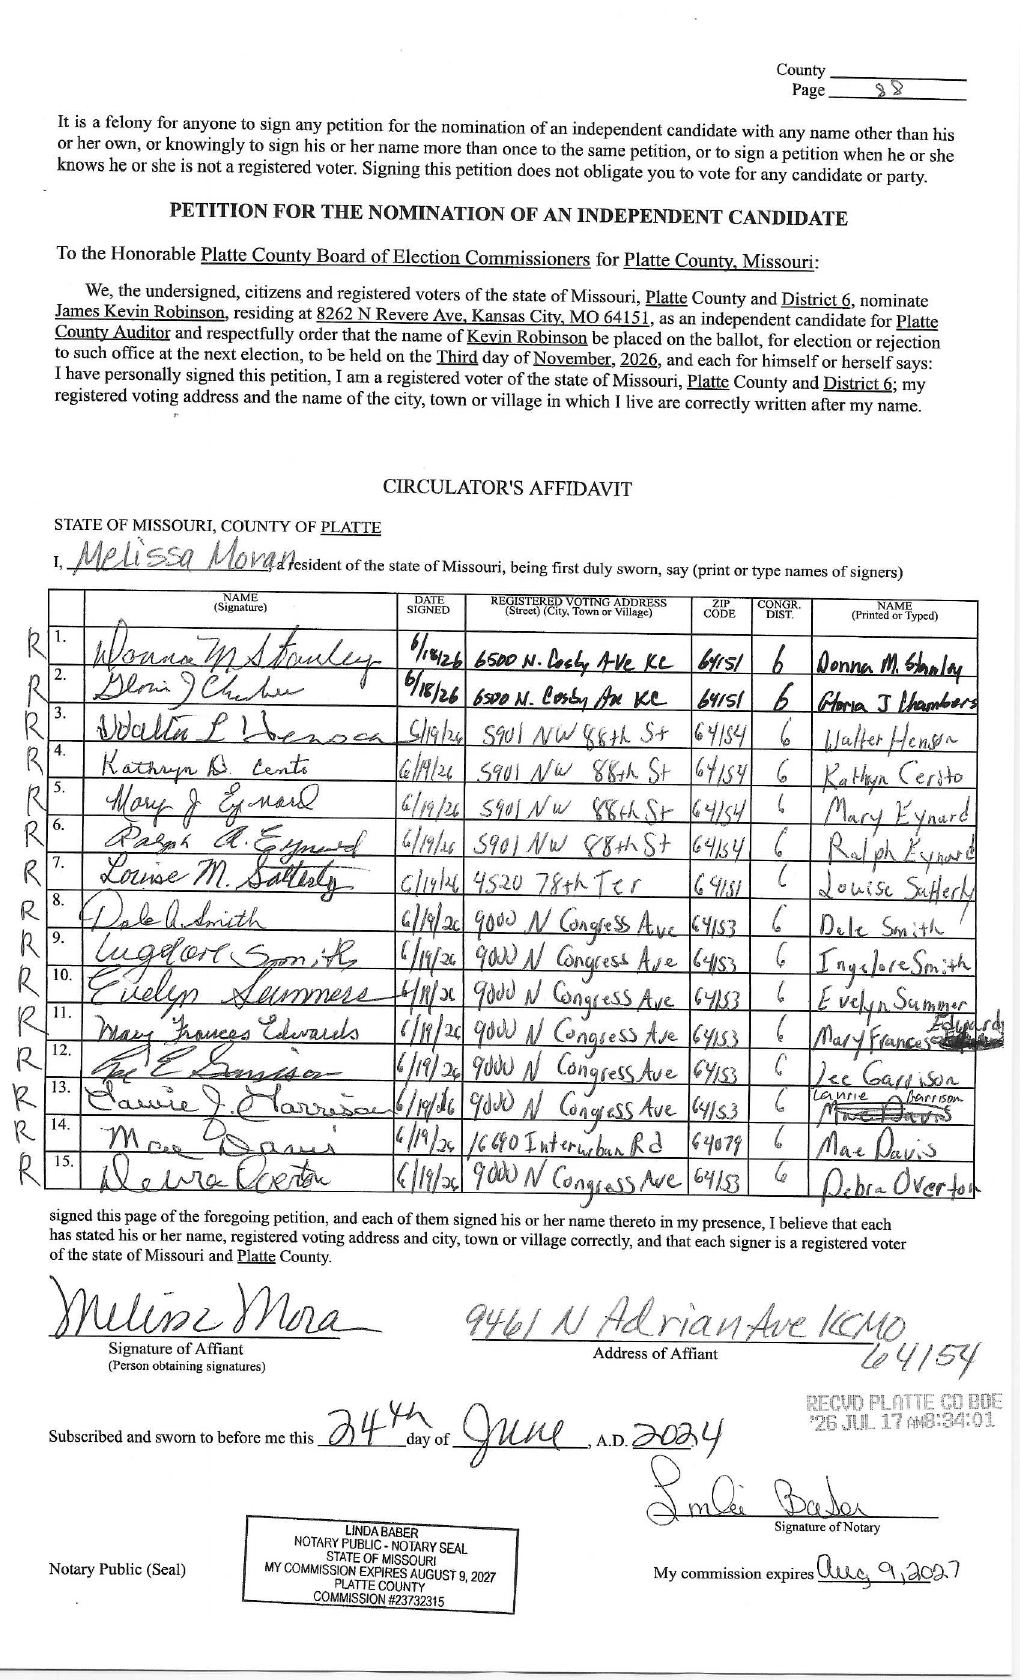 County
Page 88
It is a felony for anyone to sign any petition for the nomination of an independent candidate with any name other than his
or her own, or knowingly to sign his or her name more than once to the same petition, or to sign a petition when he or she
knows he or she is not a registered voter. Signing this petition does not obligate you to vote for any candidate or party.
PETITION FOR THE NOMINATION OF AN INDEPENDENT CANDIDATE
To the Honorable Platte County Board of Election Commissioners for Platte County, Missouri:
We, the undersigned, citizens and registered voters of the state of Missouri, Platte County and District 6, nominate
James Kevin Robinson, residing at 8262 N Revere Ave, Kansas City, MO 64151, as an independent candidate for Platte
County Auditor and respectfully order that the name of Kevin Robinson be placed on the ballot, for election or rejection
to such office at the next election, to be held on the Third day of November, 2026, and each for himself or herself says:
I have personally signed this petition, I am a registered voter of the state of Missouri, Platte County and District 6; my
registered voting address and the name of the city, town or village in which I live are correctly written after my name.
CIRCULATOR'S AFFIDAVIT
STATE OF MISSOURI, COUNTY OF PLATTE
I, Melissa Moran, a resident of the state of Missouri, being first duly sworn, say (print or type names of signers)
NAME (Signature) DATE SIGNED REGISTERED VOTING ADDRESS (Street) (City, Town or Village) ZIP CODE CONGR. DIST. NAME (Printed or Typed)
R 1. Donna M Stanley 6/18/26 6500 N. Cosby Ave KC 64151 6 Donna M. Stanley
R 2. Gloria J Chambers 6/18/26 6500 N. Cosby Ave KC 64151 6 Gloria J Chambers
R 3. Walter L Henson 6/19/26 5901 NW 88th St 64154 6 Walter Henson
R 4. Kathryn D. Cerito 6/19/26 5901 NW 88th St 64154 6 Kathryn Cerito
R 5. Mary J Eynard 6/19/26 5901 NW 88th St 64154 6 Mary Eynard
R 6. Ralph A. Eynard 6/19/26 5901 NW 88th St 64154 6 Ralph Eynard
R 7. Louise M. Satterly 6/19/26 4520 78th Ter 64151 6 Louise Satterly
R 8. Dale A. Smith 6/19/26 9000 N Congress Ave 64153 6 Dale Smith
R 9. Ingelore Smith 6/19/26 9000 N Congress Ave 64153 6 Ingelore Smith
R 10. Evelyn Summers 6/19/26 9000 N Congress Ave 64153 6 Evelyn Summer
R 11. Mary Frances Edwards 6/19/26 9000 N Congress Ave 64153 6 Mary Frances Edwards
R 12. Lee E Garrison 6/19/26 9000 N Congress Ave 64153 6 Lee Garrison
R 13. Lannie J. Garrison 6/19/26 9000 N Congress Ave 64153 6 Lannie Garrison Mae Davis
R 14. Mae Davis 6/19/26 16690 Interurban Rd 64079 6 Mae Davis
R 15. Debra Overton 6/19/26 9000 N Congress Ave 64153 6 Debra Overton
signed this page of the foregoing petition, and each of them signed his or her name thereto in my presence, I believe that each
has stated his or her name, registered voting address and city, town or village correctly, and that each signer is a registered voter
of the state of Missouri and Platte County.
Melissa Moran 9461 N Adrian Ave KCMO
64154
Signature of Affiant
(Person obtaining signatures)
Address of Affiant
RECVD PLATTE CO BOE
'26 JUL 17 AM8:34:01
Subscribed and sworn to before me this 24th day of June, A.D. 2024
Linda Baber
Signature of Notary
LINDA BABER
NOTARY PUBLIC - NOTARY SEAL
STATE OF MISSOURI
MY COMMISSION EXPIRES AUGUST 9, 2027
PLATTE COUNTY
COMMISSION #23732315
Notary Public (Seal)
My commission expires Aug 9, 2027